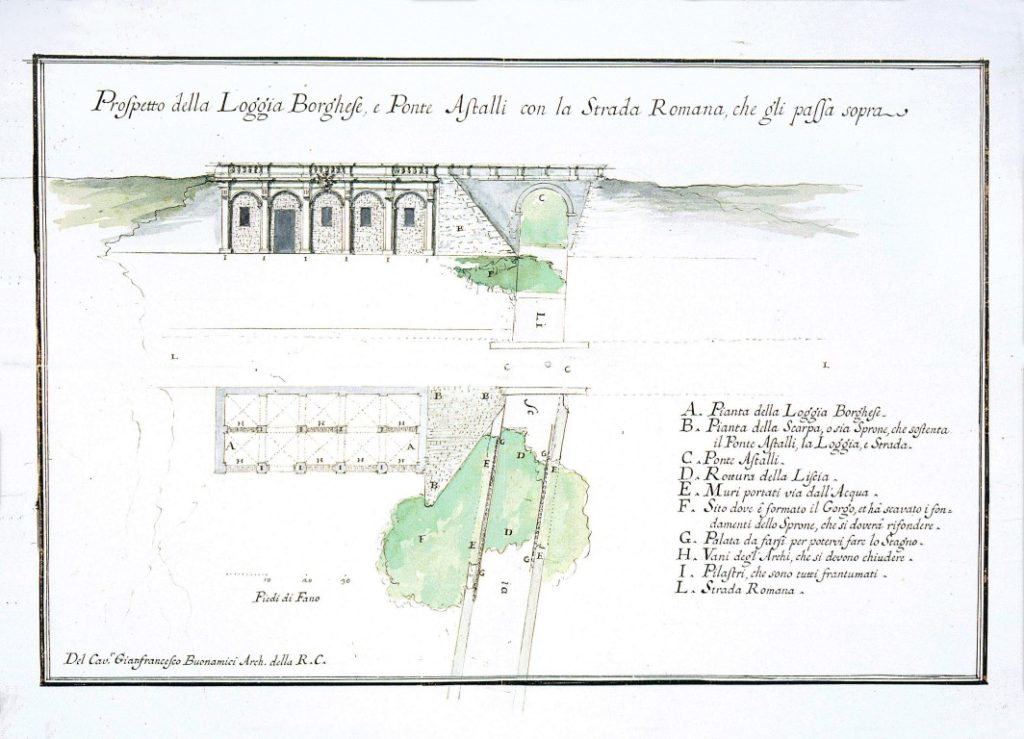 Proſpetto della Loggia Borgheſe, e Ponte Aſtalli con la Strada Romana, che gli paſſa sopra
C
B
F
I I I I I I
Li
L
C C
L
B B
Sc
H H H
A A
H H H H
I I I I
B
D
E
G
E
F
D
E
G
E
G
G
ia
A. Pianta della Loggia Borgheſe.
B. Pianta della Scarpa, o sia Sprone, che soſtenta
il Ponte Aſtalli, la Loggia, e Strada.
C. Ponte Aſtalli.
D. Rottura della Liſcia.
E. Muri portati via dall'Acqua.
F. Sito dove è formato il Gorgo, et hà scavato i fon-
damenti dello Sprone, che si doverà rifondere.
G. Palata da farsi per potervi fare lo Stagno.
H. Vani degl'Archi, che si devono chiudere.
I. Pilaſtri, che sono tutti frantumati.
L. Strada Romana.
10 20 30
Piedi di Fano
Del Cav.r Gianfrancesco Buonamici Arch. della R.C.